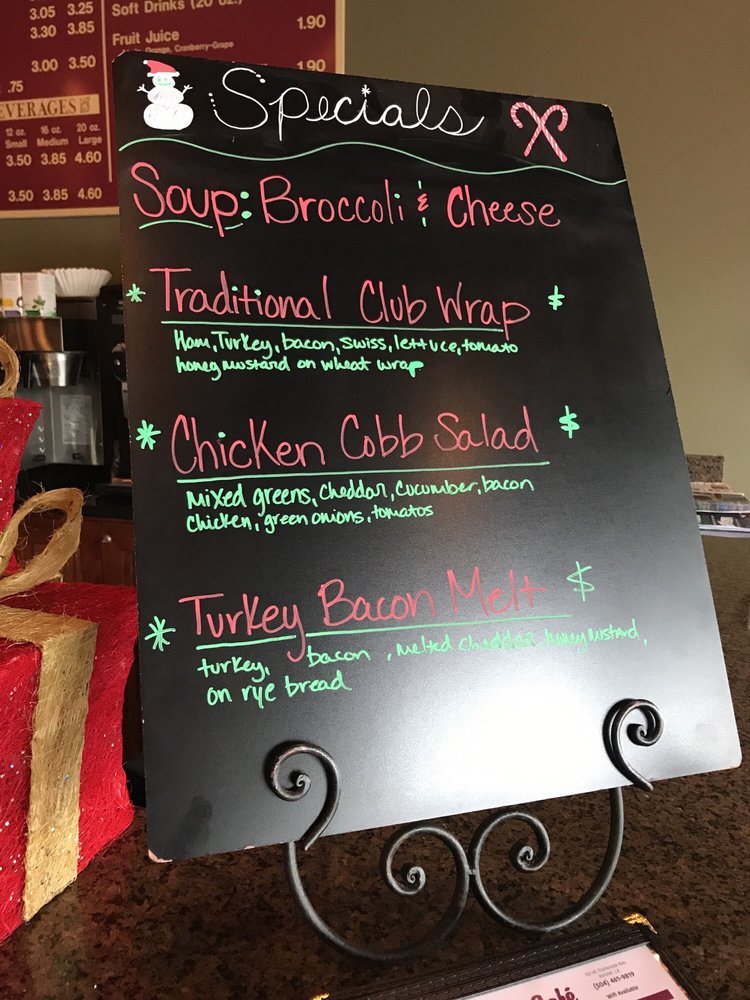 3.05 3.25
3.85
3.30 3.85
3.00 3.50
.75
Soft Drinks (20 oz.)
1.90
Fruit Juice
Orange, Cranberry-Grape
1.90
EVERAGES
12 oz. 16 oz. 20 oz.
Small Medium Large
3.50 3.85 4.60
3.50 3.85 4.60
Specials
Soup: Broccoli & Cheese
* Traditional Club Wrap $
Ham, Turkey, bacon, swiss, lettuce, tomato
honey mustard on wheat wrap
* Chicken Cobb Salad $
mixed greens, cheddar, cucumber, bacon
chicken, green onions, tomatos
* Turkey Bacon Melt $
turkey, bacon, melted cheddar, honey mustard,
on rye bread
Kenner, LA
(504) 461-9819
Wifi Available
Café